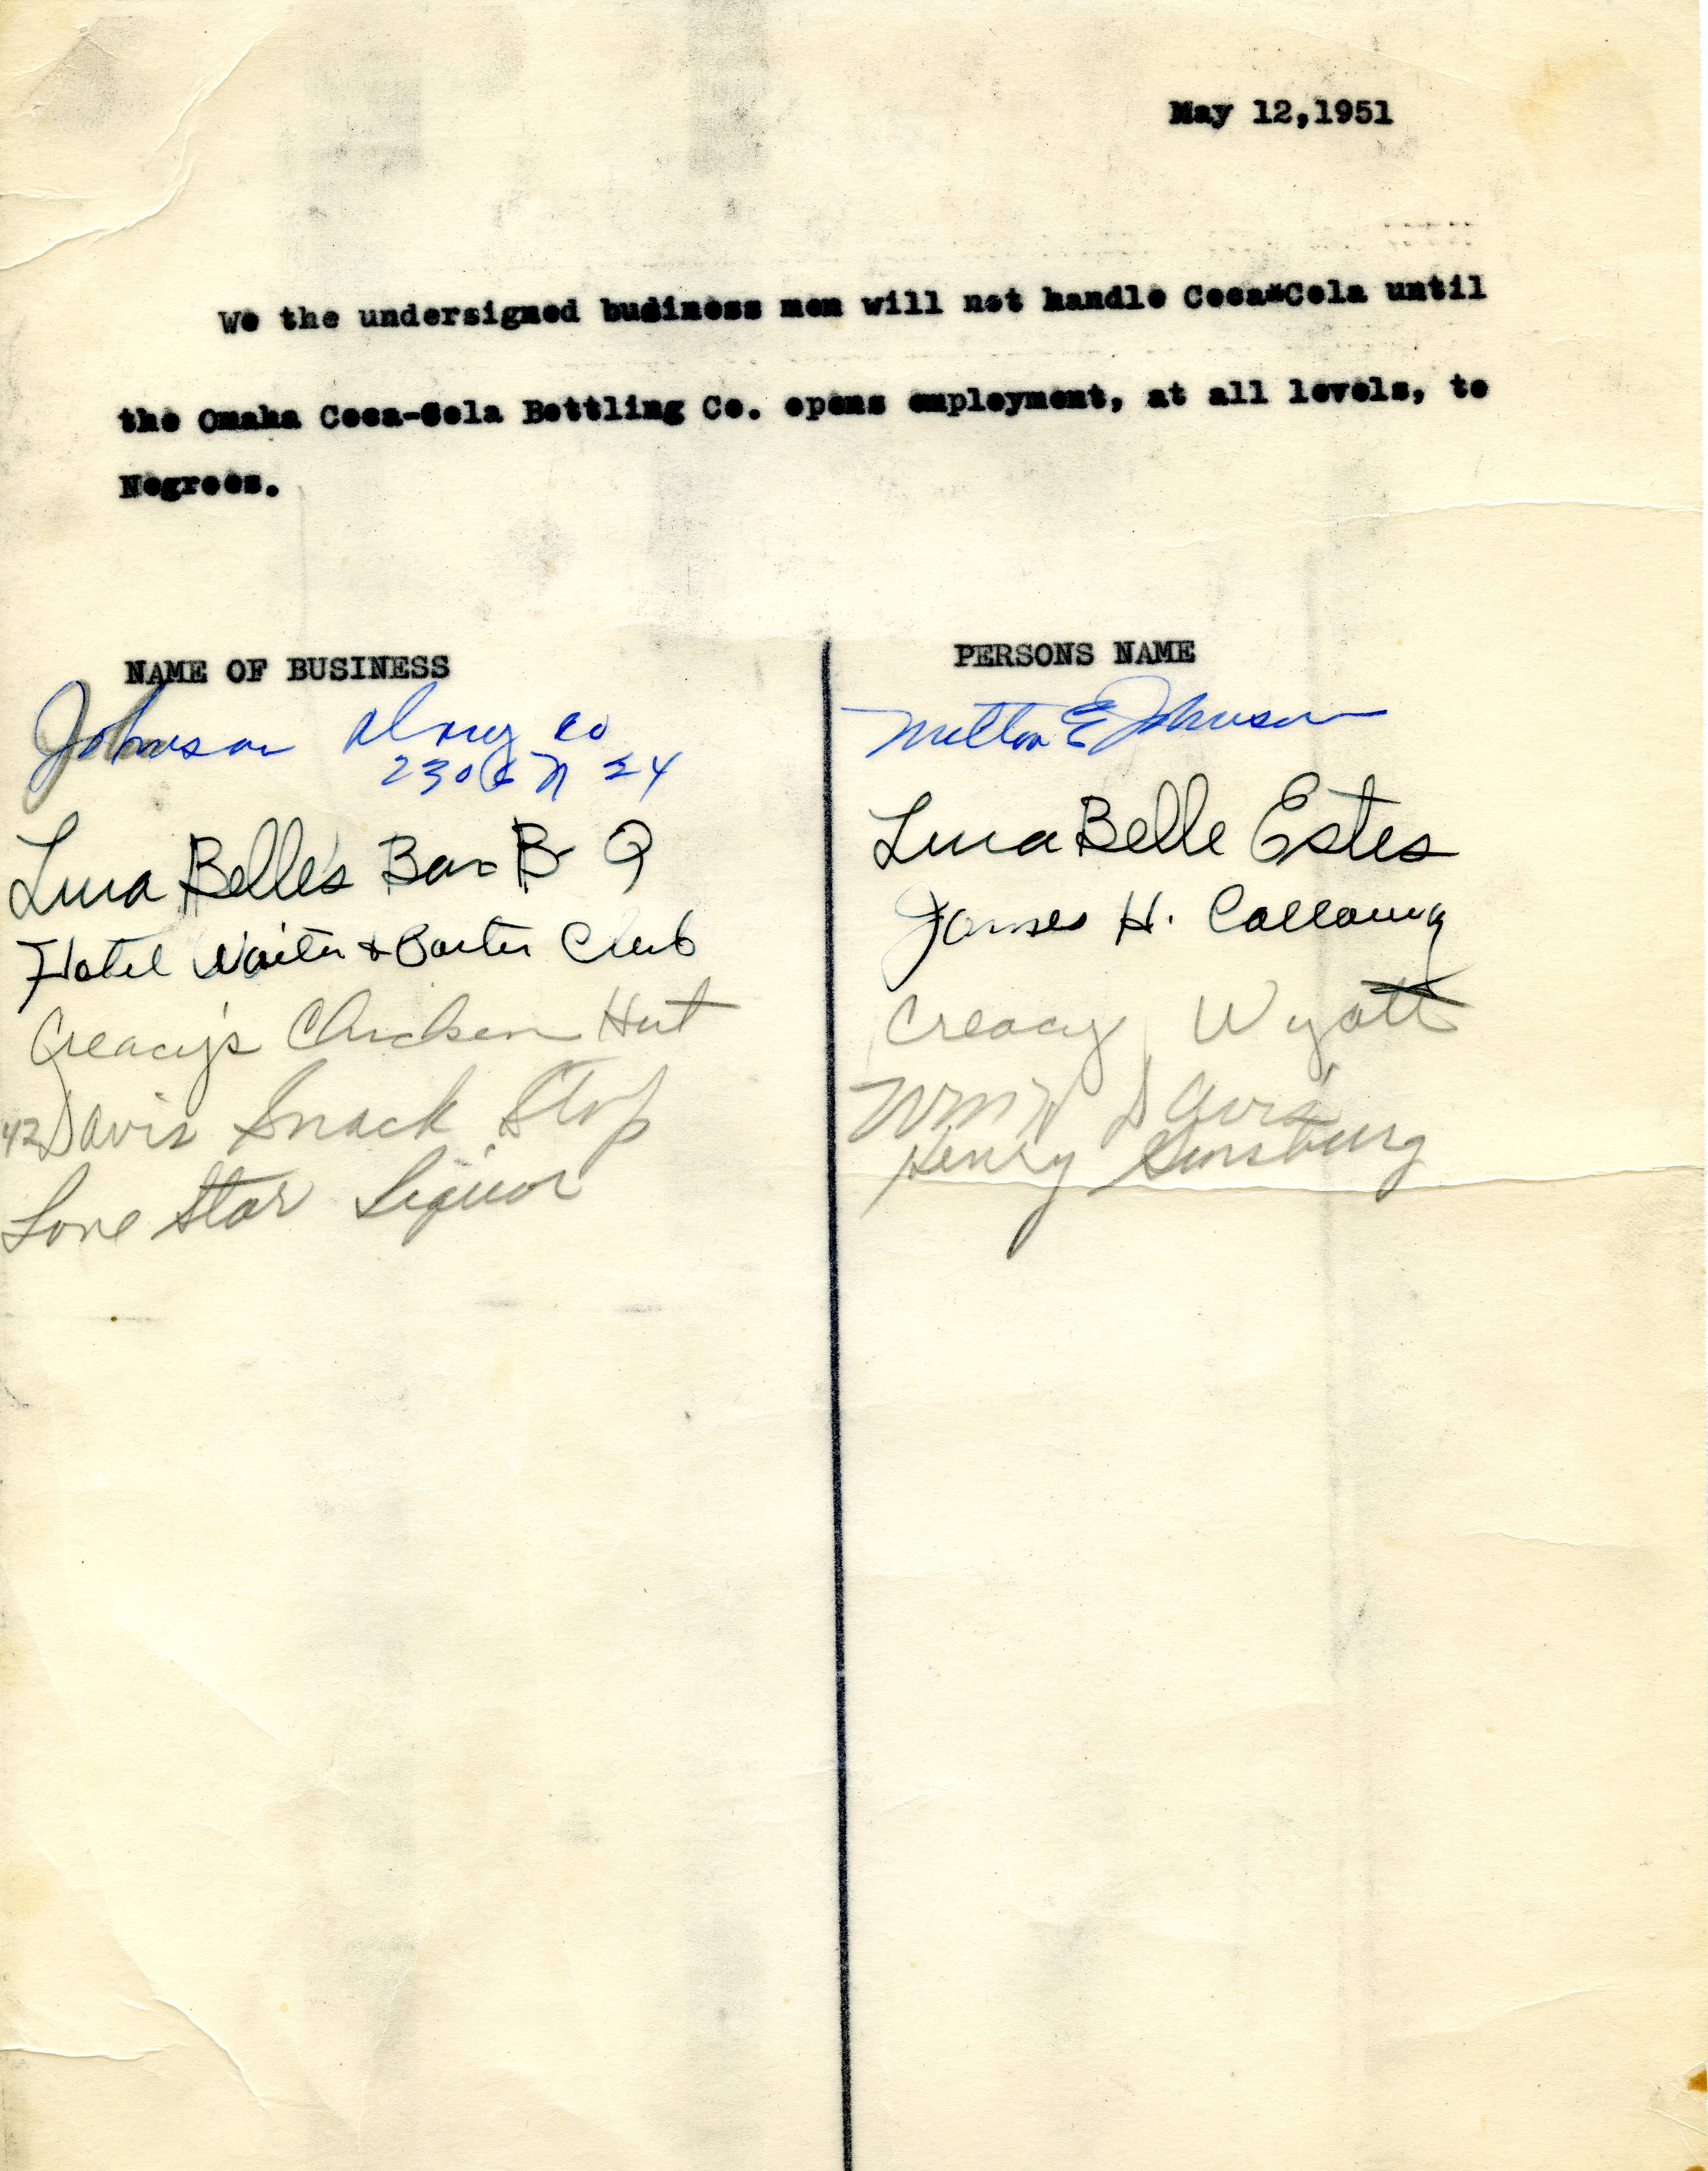 May 12,1951
We the undersigned budiness men will not handle Coca*Cola until
the Omaha Coca-Cola Bottling Co. opens employment, at all levels, to
Negroes.
NAME OF BUSINESS
PERSONS NAME
Johnson Drug Co
2306 N 24
Milton E Johnson
Lura Belle's Bar B Q
Lura Belle Estes
Hotel Waiter & Porter Club
James H. Calloway
Creacy's Chicken Hut
Creacy Wyatt
Davis Snack Stop
Wm W Davis
Lone Star Liquor
Henry Ginsburg